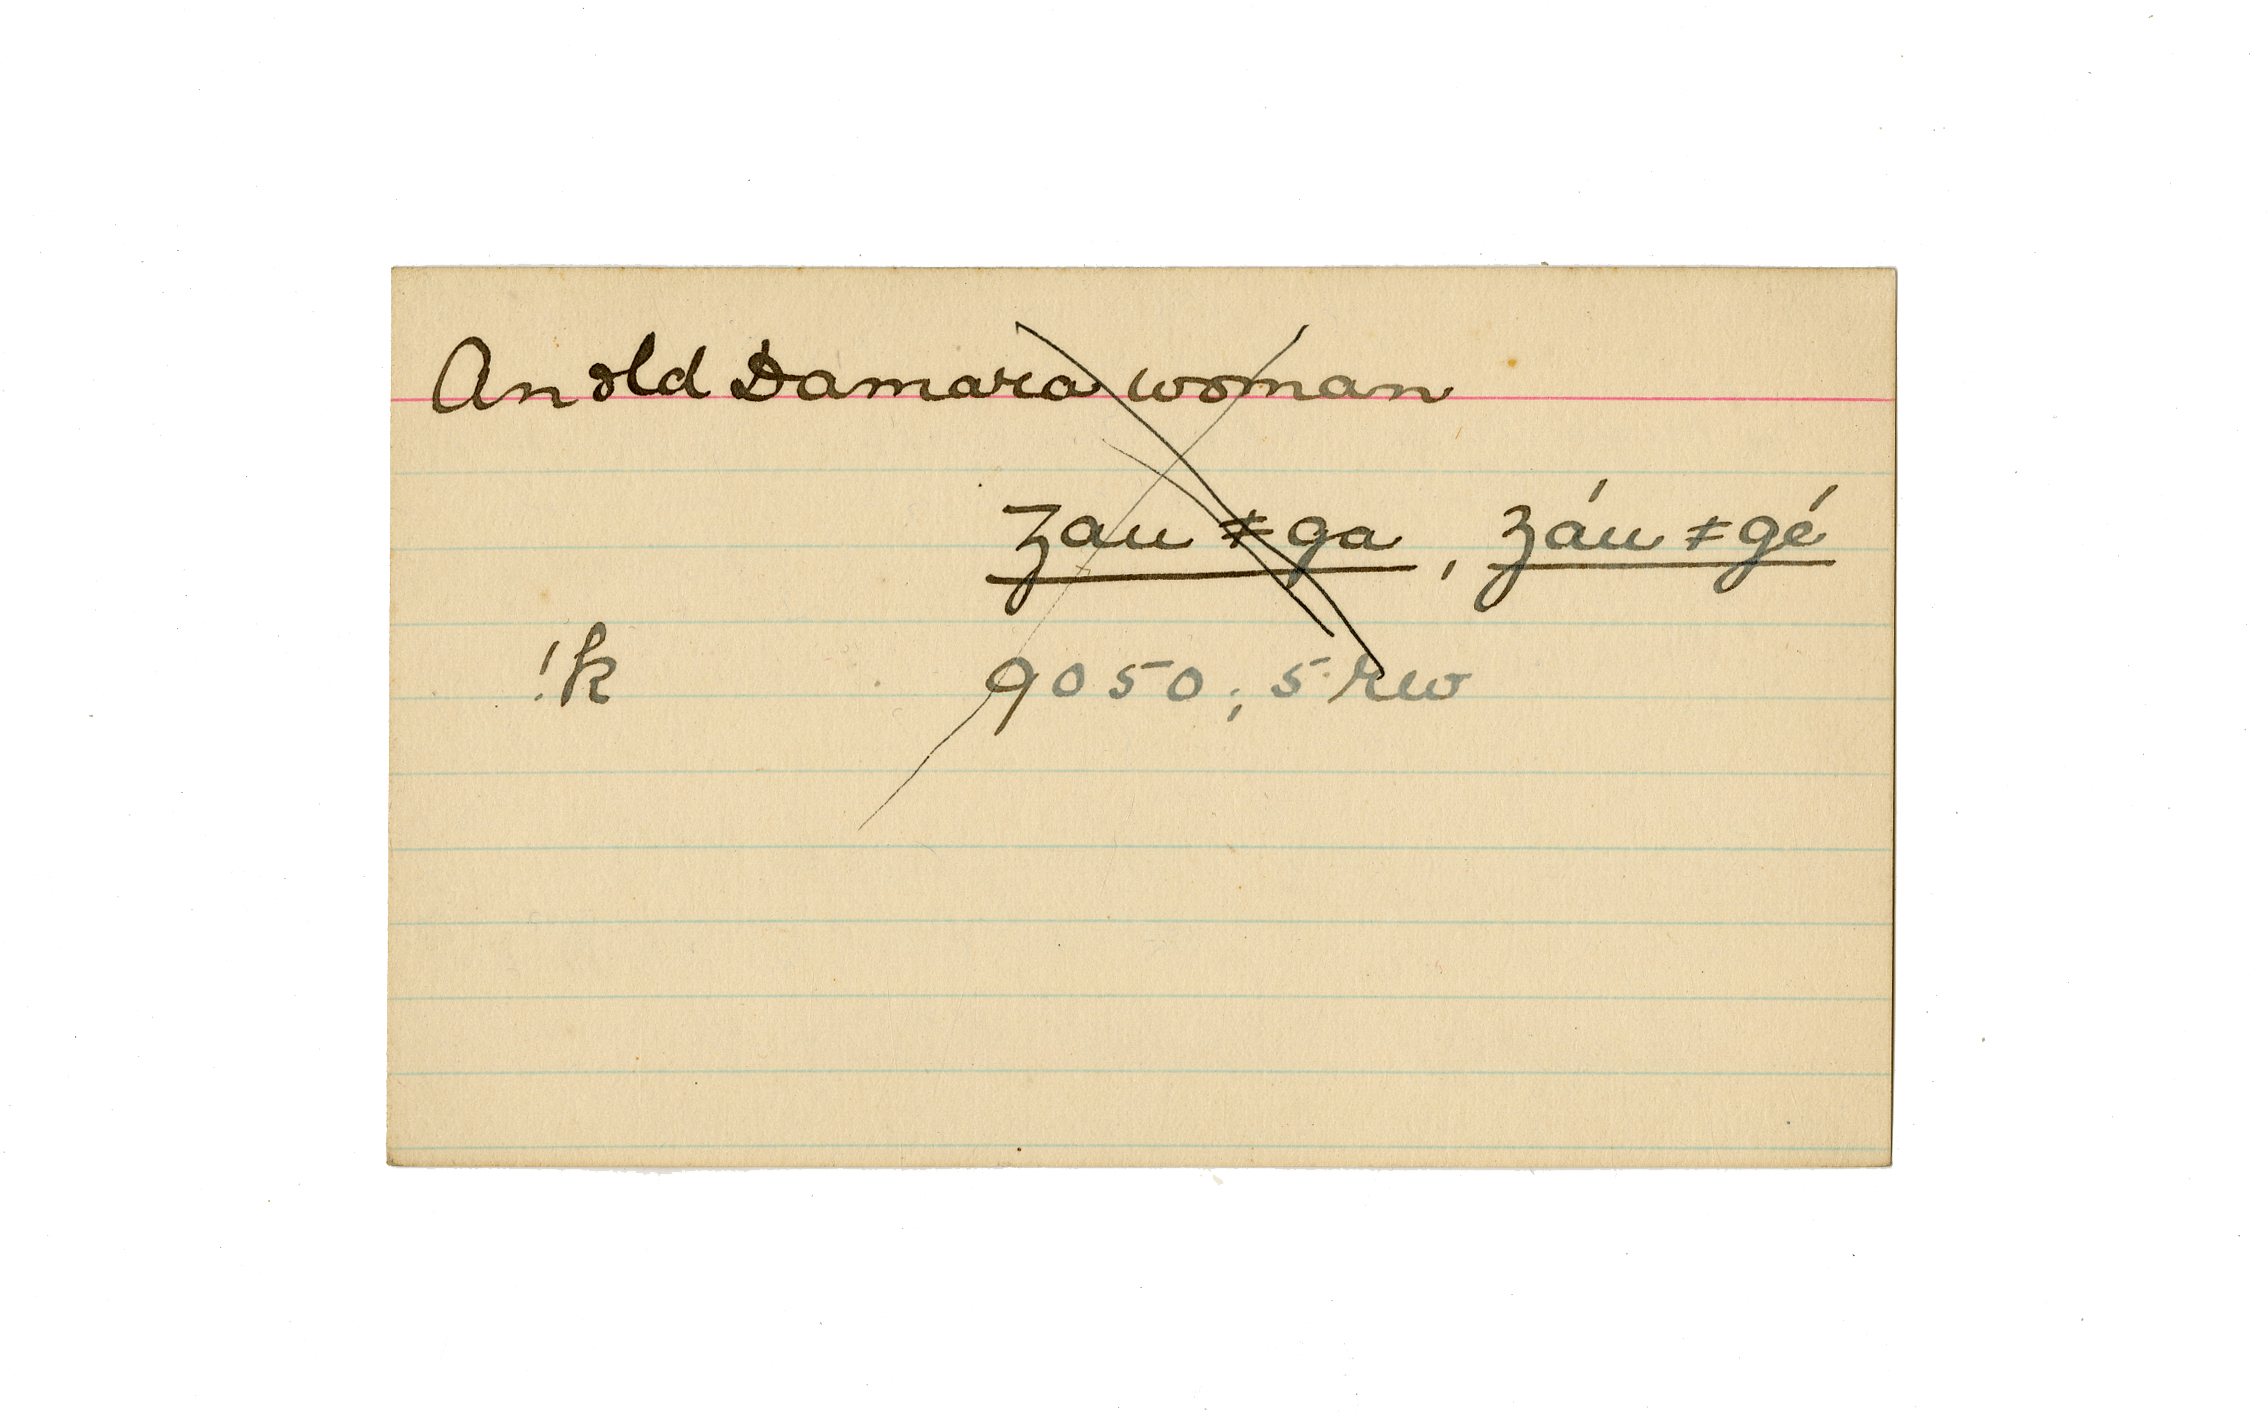 An old Damara woman
zau ǂga, záu ǂgé
!k 9050; 5 rw